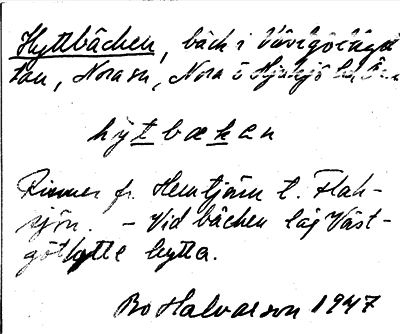 Hyttbäcken, bäck i
tan, Nora sn, Nora o Hjulsjö
hytbæken
Rinner fr. Hemtjärn t. Flak-
sjön. – Vid bäcken låg Väst-
göthytte hytta.
Bo Halvarson 1947